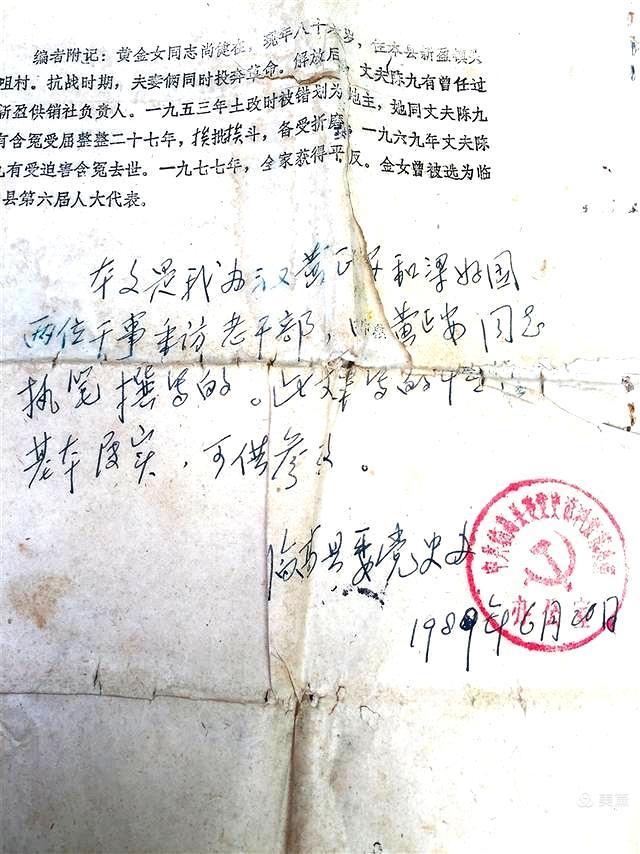 编者附记：黄金女同志尚健在，现年八十六岁，住本县新盈镇头
咀村。抗战时期，夫妻俩同时投奔革命。解放后，丈夫陈九有曾任过
新盈供销社负责人。一九五三年土改时被错划为地主，她同丈夫陈九
有含冤受屈整整二十七年，挨批挨斗，备受折磨，一九六九年丈夫陈
九有受迫害含冤去世。一九七七年，全家获得平反。金女曾被选为临
县第六届人大代表。
本文是我办 黄 和
两位干事采访老干部，由黄 同志
执笔撰写的。此文 写的
基本 实，可供参 。
临高县委党史办
中共临高县委党史
办公室
198 年6月20日
美篇